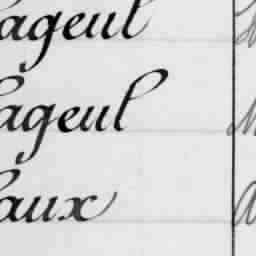 ageul
ageul
aux